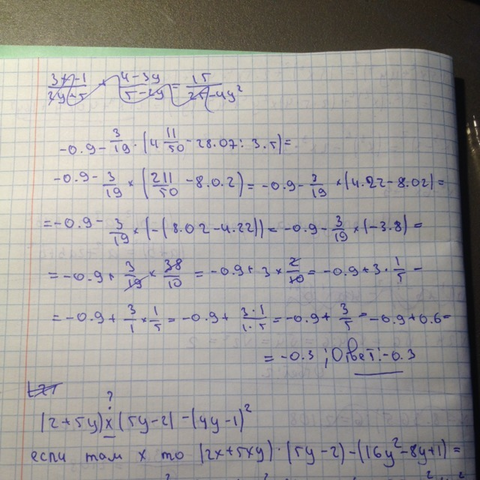 (3x-1)/(2y-5) × (4-3y)/(5-2y) = 15/(25-4y²)
-0.9 - 3/19 · (4 11/50 - 28.07 : 3.5) =
-0.9 - 3/19 × (211/50 - 8.0.2) = -0.9 - 3/19 × (4.22 - 8.02) =
= -0.9 - 3/19 × (-(8.02 - 4.22)) = -0.9 - 3/19 × (-3.8) =
= -0.9 + 3/19 × 38/10 = -0.9 + 3 × 2/10 = -0.9 + 3 · 1/5 =
= -0.9 + 3/1 × 1/5 = -0.9 + (3·1)/(1·5) = -0.9 + 3/5 = -0.9 + 0.6 =
= -0.3 ; Ответ: -0.3
?
(2+5y) x (5y-2) - (4y-1)²
если там x то (2x+5xy) · (5y-2) - (16y²-8y+1) =